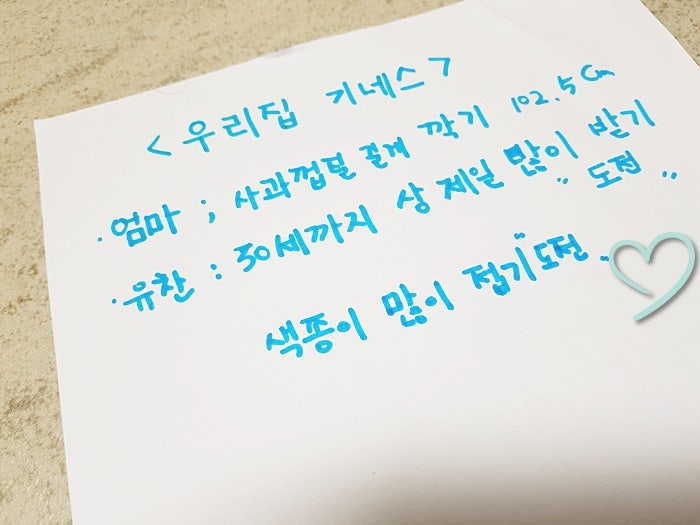 <우리집 기네스>
· 엄마 ; 사과껍덜 길게 깍기 102.5cm
· 유찬 : 30세까지 상 제일 많이 받기
" 도전 "
색종이 많이 접기 "도전"